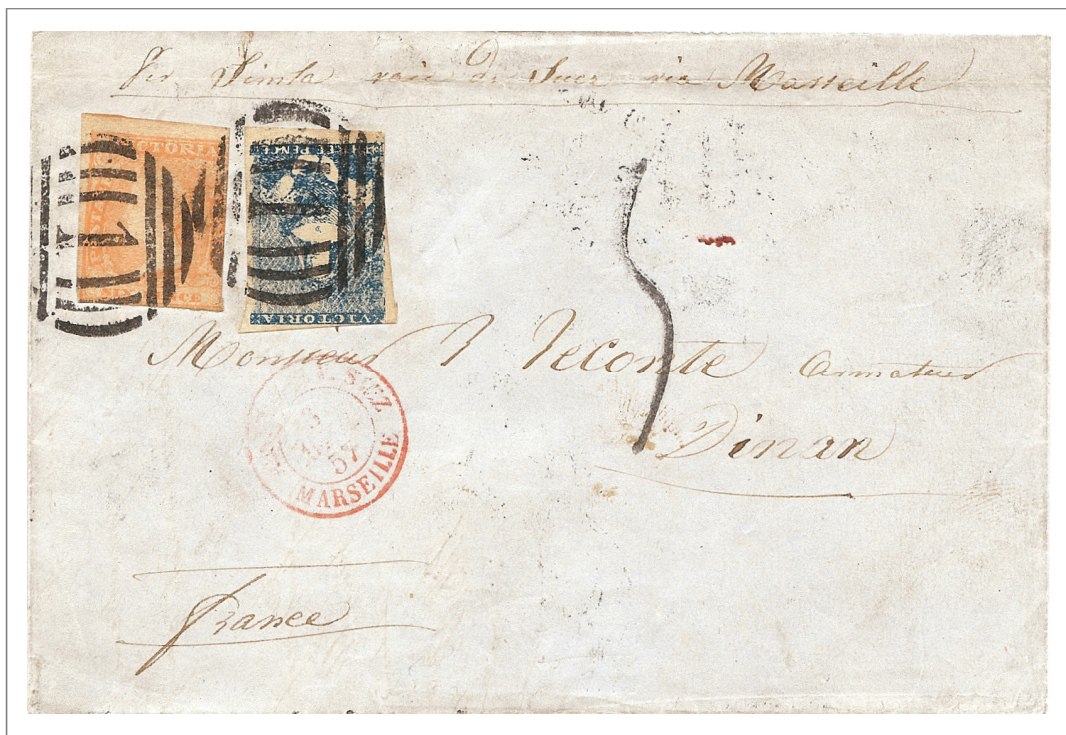 Per Simla voie de Suez via Marseille
VICTORIA
SIX PENCE
THREE PENCE
VICTORIA
1
1
5
Monsieur J Leconte Armateur
Dinan
SUEZ
57
MARSEILLE
France